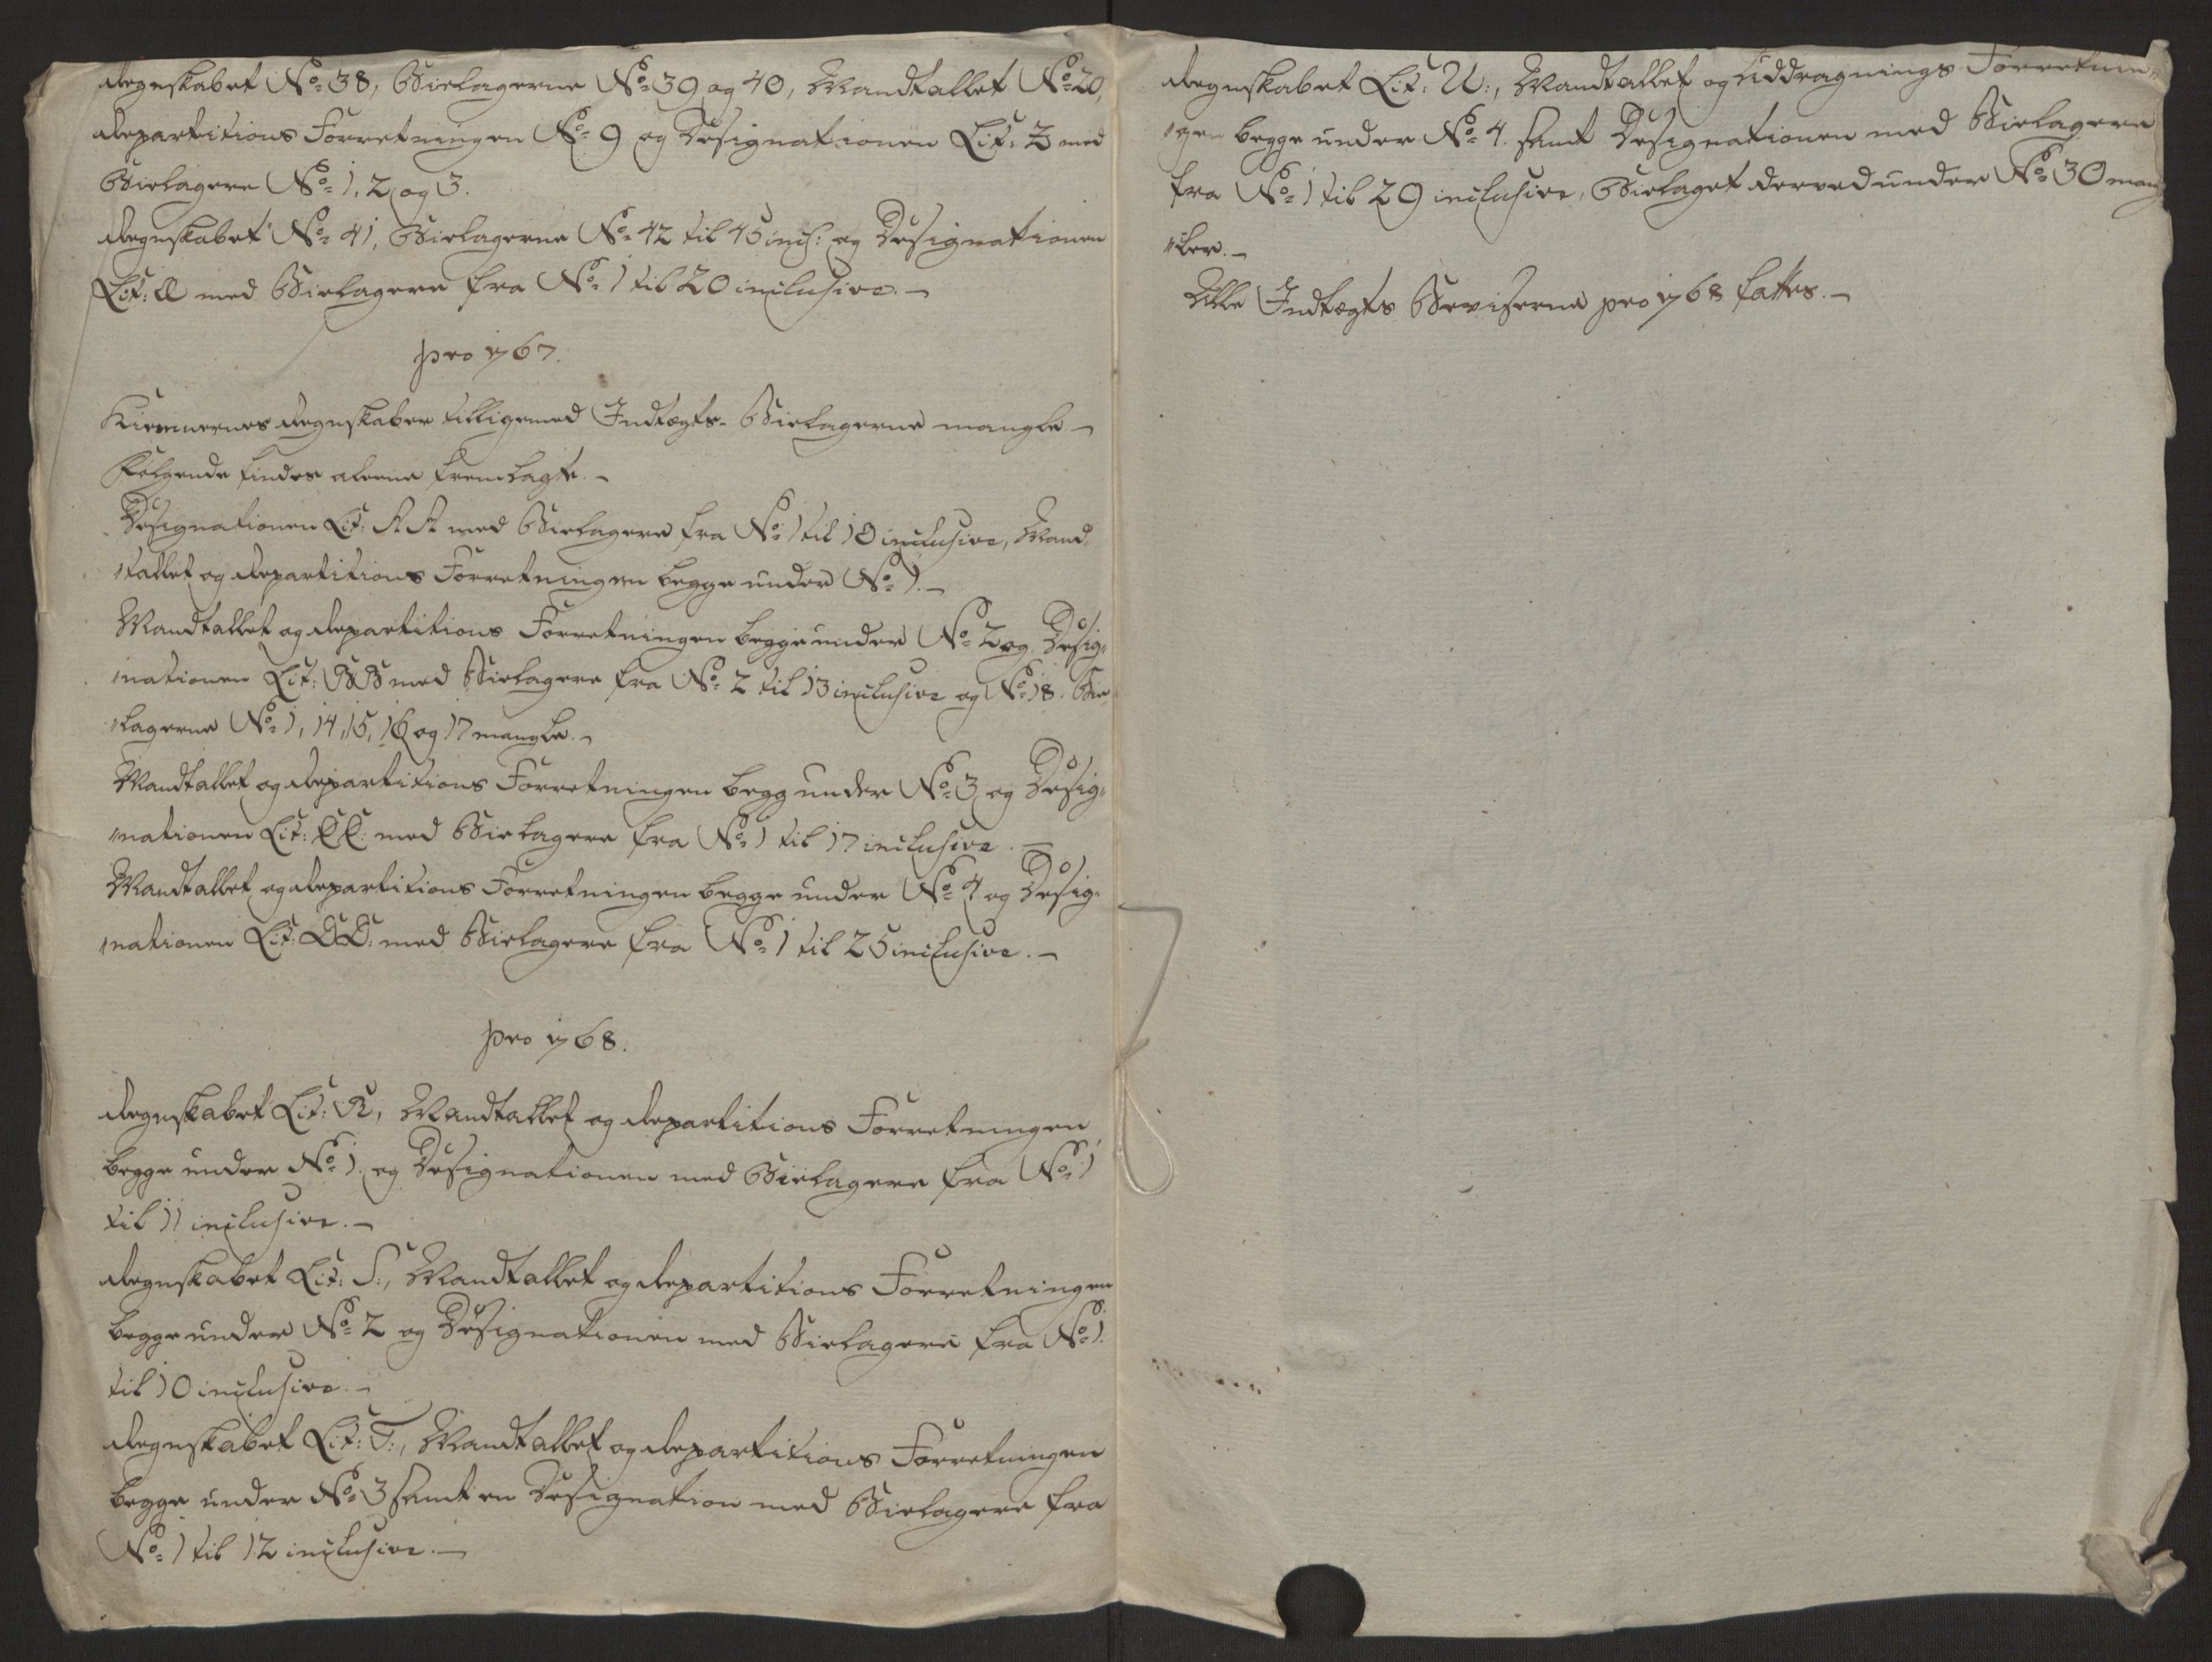 Regnskabet No 38, Bielagerne No 39 og 40, Mandtallet No 20,
Repartitions Forretningen No 9 og Designationen Lit: Z med
Bielagere No 1, 2 og 3.
Regnskabet No 41, Bielagerne No 42 til 45 incl: og Designationen
Lit: Æ med Bielagere fra No 1 til 20 inclusive.
pro 1767.
Kiemnernes Regnskaber tilligemed Indtægts-Bielagerne mangle
Følgende findes aleene fremlagte.
Designationen Lit: AA med Bielagere fra No 1 til 10 inclusive, Mand-
tallet og Repartitions Forretningen begge under No 1.
Mandtallet og Repartitions Forretningen begge under No 2 og Desig-
nationen Lit: BB med Bielagere fra No 2 til 13 inclusive og No 18. Bie-
lagerne No 1, 14, 15, 16 og 17 mangle.
Mandtallet og Repartitions Forretningen begg under No 3 og Desig-
nationen Lit: CC: med Bielagere fra No 1 til 17 inclusive.
Mandtallet og Repartitions Forretningen begge under No 4 og Desig-
nationen Lit: DD: med Bielagere fra No 1 til 25 inclusive.
pro 1768.
Regnskabet Lit: R, Mandtallet og Repartitions Forretningen
begge under No 1. og Designationen med Bielagere fra No 1
til 11 inclusive.
Regnskabet Lit: S:, Mandtallet og Repartitions Forretningen
begge under No 2 og Designationen med Bielagere fra No 1.
til 10 inclusive.
Regnskabet Lit: T:, Mandtallet og Repartitions Forretningen
begge under No 3 samt en Designation med Bielagere fra
No 1 til 12 inclusive.
Regnskabet Lit: U:, Mandtallet og Uddragnings Forretnin-
gen begge under No 4. samt Designationen med Bielagere
fra No 1 til 29 inclusive, Bielaget derved under No 30 mang-
ler.
Alle Indtægts Beviserne pro 1768 fattes.